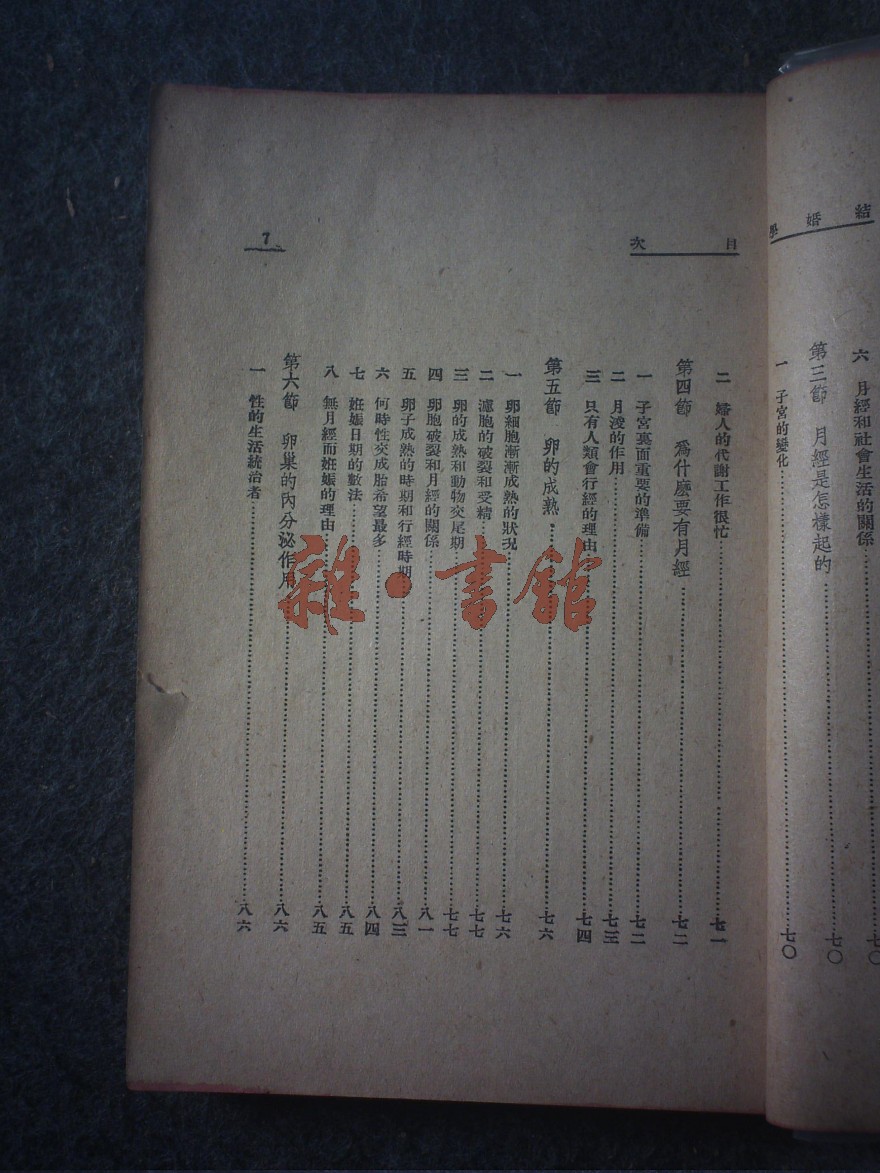 結婚學
六 月經和社會生活的關係……七〇
第三節 月經是怎樣起的……七〇
一 子宮的變化……七〇
目次
二 婦人的代謝工作很忙……七一
第四節 爲什麽要有月經……七二
一 子宮裏面重要的準備……七二
二 月浚的作用……七三
三 只有人類會行經的理由……七四
第五節 卵的成熟……七六
一 卵細胞漸漸成熟的狀况……七六
二 濾胞的破裂和受精……七七
三 卵的成熟和動物交尾期……七七
四 卵胞破裂和月經的關係……八一
五 卵子成熟的時期和行經時期……八三
六 何時性交成胎希望最多……八四
七 姙娠日期的數法……八五
八 無月經而姙娠的理由……八五
第六節 卵巢的內分泌作用……八六
一 性的生活統治者……八六
7
雜·書館